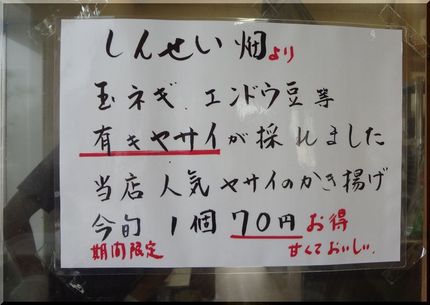 しんせい畑より
玉ネギ.エンドウ豆等
有きヤサイが採れました
当店人気ヤサイのかき揚げ
今旬 1個70円お得
期間限定 甘くておいしい.